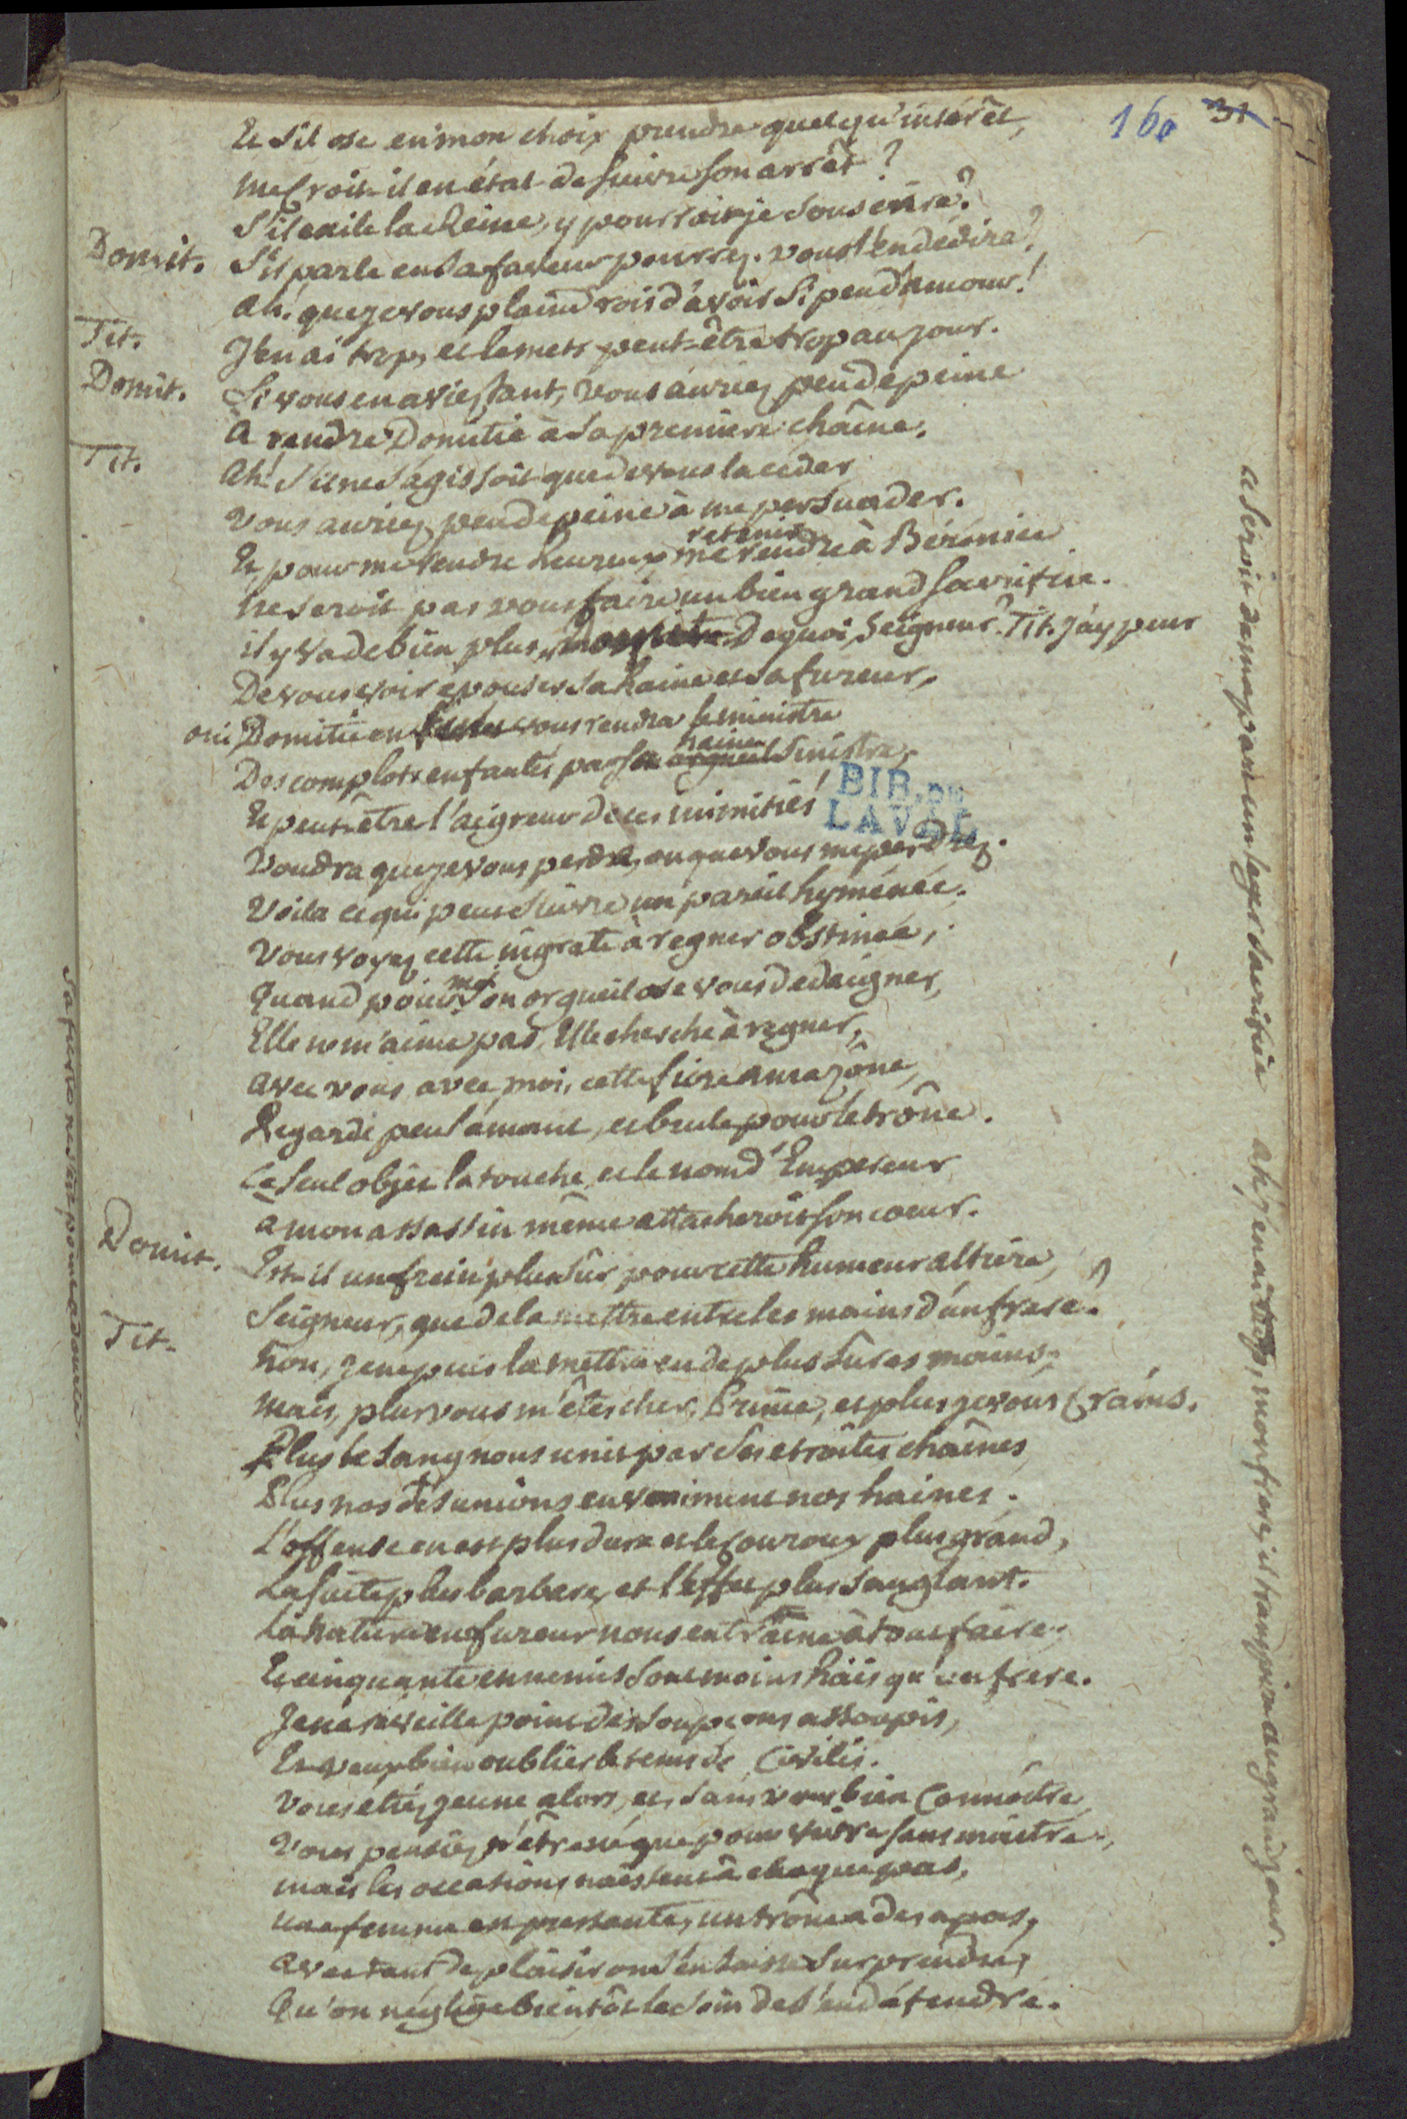 160 31
Et s'il ose en mon choix prendre quelqu'intérêt,
me Croit-il en état de suivre son arrêt?
S'il exile la Reine, y pourrois-je souscrire?
Domit. S'il parle en sa faveur pourrez-vous l'en dedire?
Ah! que je vous plaindrois d'avoir si peu d'amour!
Tit. J'en ai trop, et le mets peut-être trop au jour.
Domit. Si vous en aviez tant, vous auriez peu de peine
A rendre Domitie à sa premiere chaîne.
Tit. Ah! S'il ne s'agissoit que de vous la céder
vous auriez peu de peine à me persuader.
Et pour me rendre heureux me rendre à Bérénice
retenir
ne seroit pas vous faire un bien grand sacrifice.
il y va de bien plus. De quoi, Seigneur? Tit. J'ay peur
De vous voir epouser sa haine et sa fureur,
oui Domitie en vous rendra le ministre
Des complots enfantés par son orgueil sinistre,
haine
Et peut-être l'aigreur de ces inimitiés
BIB. DE LAVAL
Voudra que je vous perde, ou que vous me perdiez.
Voila ce qui peut suivre un pareil hyménée.
Vous voyez cette ingrate à regner obstinée,
Quand pour moi son orgueil ose vous dedaigner,
Elle ne m'aime pas, Elle cherche à regner,
avec vous, avec moi, cette fiere amazône,
Regarde peu l'amant, et brule pour le trône.
Ce seul objet la touche, et le nom d'Empereur
a mon assassin même attacheroit son coeur.
Domit. Est-il un frein plus sûr pour cette humeur altiere,
Seigneur, que de la mettre entre les mains d'un frere?
Tit. Non, je ne puis la mettre en de plus sûres mains;
mais, plus vous m'êtes cher, Prince, et plus je vous Crains.
Plus le sang nous unit par ses etroites chaînes,
Plus nos désunions enveniment nos haines.
L'offense en est plus dure et le Couroux plus grand,
La suite plus barbare, et l'effet plus sanglant.
La nature en fureur nous entraine à tout faire.
Et cinquante ennemis sont moins haïs qu'un frere.
Je ne reveille point des soupçons assoupis,
Et veux bien oublier le tems de Civilis.
Vous etiez jeune alors, et, sans vous bien Connoître,
Vous pensiez n'être né que pour vivre sans maitre,
mais les occasions naissent à chaque pas,
une femme est pressante, un trône a des apas,
avec tant de plaisir on s'en laisse surprendre,
Qu'on néglige bientôt le soin de s'en défendre.
ce seroit de ma part un leger sacrifice
ah, j'en ai trop, mon frere, il transpire au grand jour.